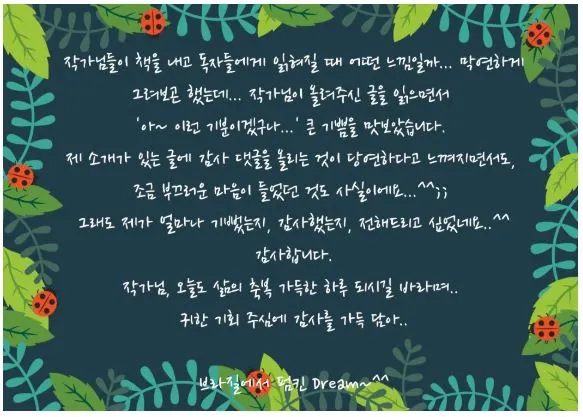 작가님들이 책을 내고 독자들에게 읽혀질 때 어떤 느낌일까... 막연하게
그려보곤 했는데... 작가님이 올려주신 글을 읽으면서
'아~ 이런 기분이겠구나...' 큰 기쁨을 맛보았습니다.
제 소개가 있는 글에 감사 댓글을 올리는 것이 당연하다고 느껴지면서도,
조금 부끄러운 마음이 들었던 것도 사실이에요...^^;;
그래도 제가 얼마나 기뻤는지, 감사했는지, 전해드리고 싶었네요..^^
감사합니다.
작가님, 오늘도 삶의 축복 가득한 하루 되시길 바라며..
귀한 기회 주심에 감사를 가득 담아..
브라질에서 펌킨 Dream~^^